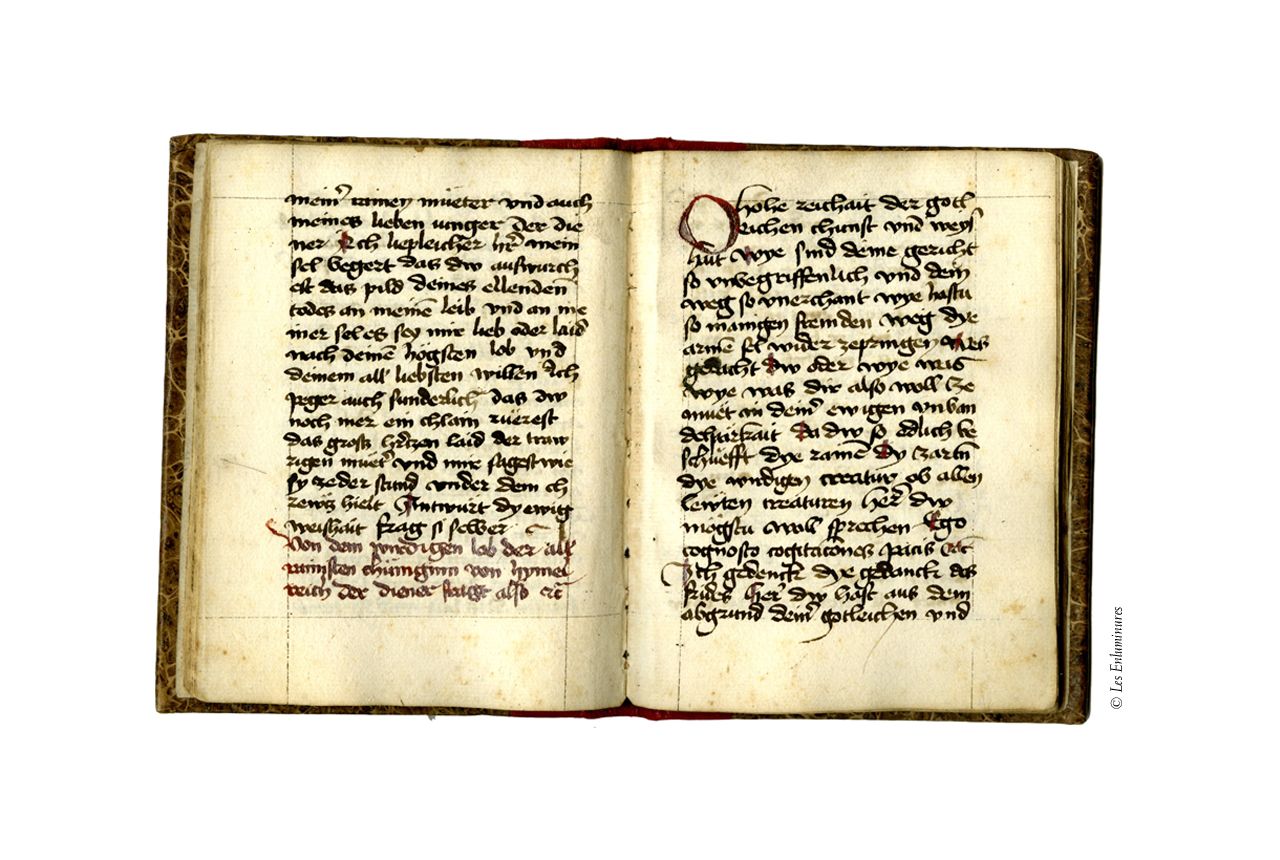 mein̄ rainen müeter vnd auch
meines lieben iunger Der die
ner Ach liepleicher hr̄ mein
sel begert das dw auswurch
est das pild deines ellenden
todes an meinē leib vnd an me
iner sel es sey mir lieb oder laid
nach deinē högsten lob vnd
deinem all liebsten willen Ich
peger auch sunderlich das dw
noch mer ein chlain rüerest
das gross hertzen laid der traw
rigen müet̄ vnd mir sagest wie
sy ze der stund vnder dem ch
rewtz hielt Antwurt dy ewig
weishait frag si selber
Von dem wirdigen lob der all
rainisten chüniginn von hymel
reich Der diener fragt also etc
O hohe reichait der gotl
eichen chunst vnd weys
hait wye sind deine gericht
so vnbegriffenlich vnd dein
weg so vnerchant wye hastu
so mainigen fremden weg dye
armē sel wider zepringen Wes
gedacht dw oder wye was
wye was dir also woll ze
müet in dein̄ ewigen vnban
delpärkait Da dw so adlich be
schüefft dye rainē dy zartn̄
dye wirdigen creatur ob allen
lewten creaturen her dw
mögstu woll sprechen Ego
cognosco cogitaciones pacis etc̄
Ich gedenck dye gedanck des
frides her̄ dw hast aus dem
abgrund dein̄ gotleichen vnd
© Les Enluminures